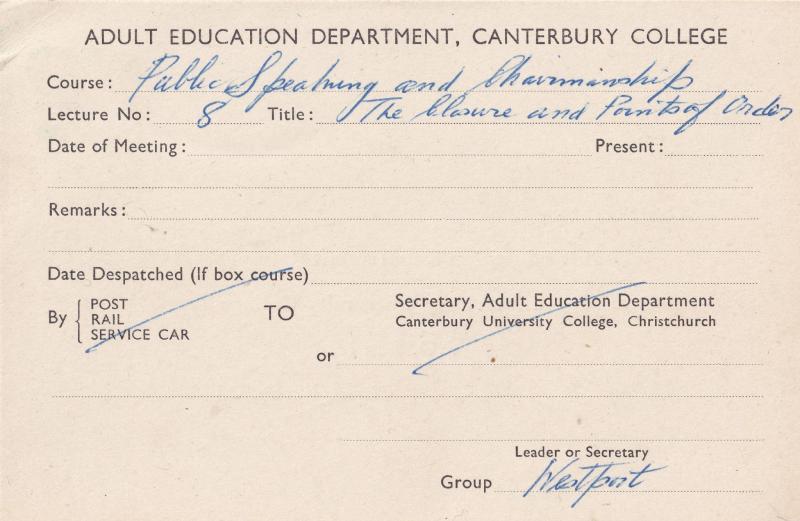 ADULT EDUCATION DEPARTMENT, CANTERBURY COLLEGE
Course: Public Speaking and Chairmanship
Lecture No: 8 Title: The Closure and Points of Order
Date of Meeting: Present:
Remarks:
Date Despatched (If box course)
By { POST
RAIL
SERVICE CAR
TO
Secretary, Adult Education Department
Canterbury University College, Christchurch
or
Leader or Secretary
Group Westport